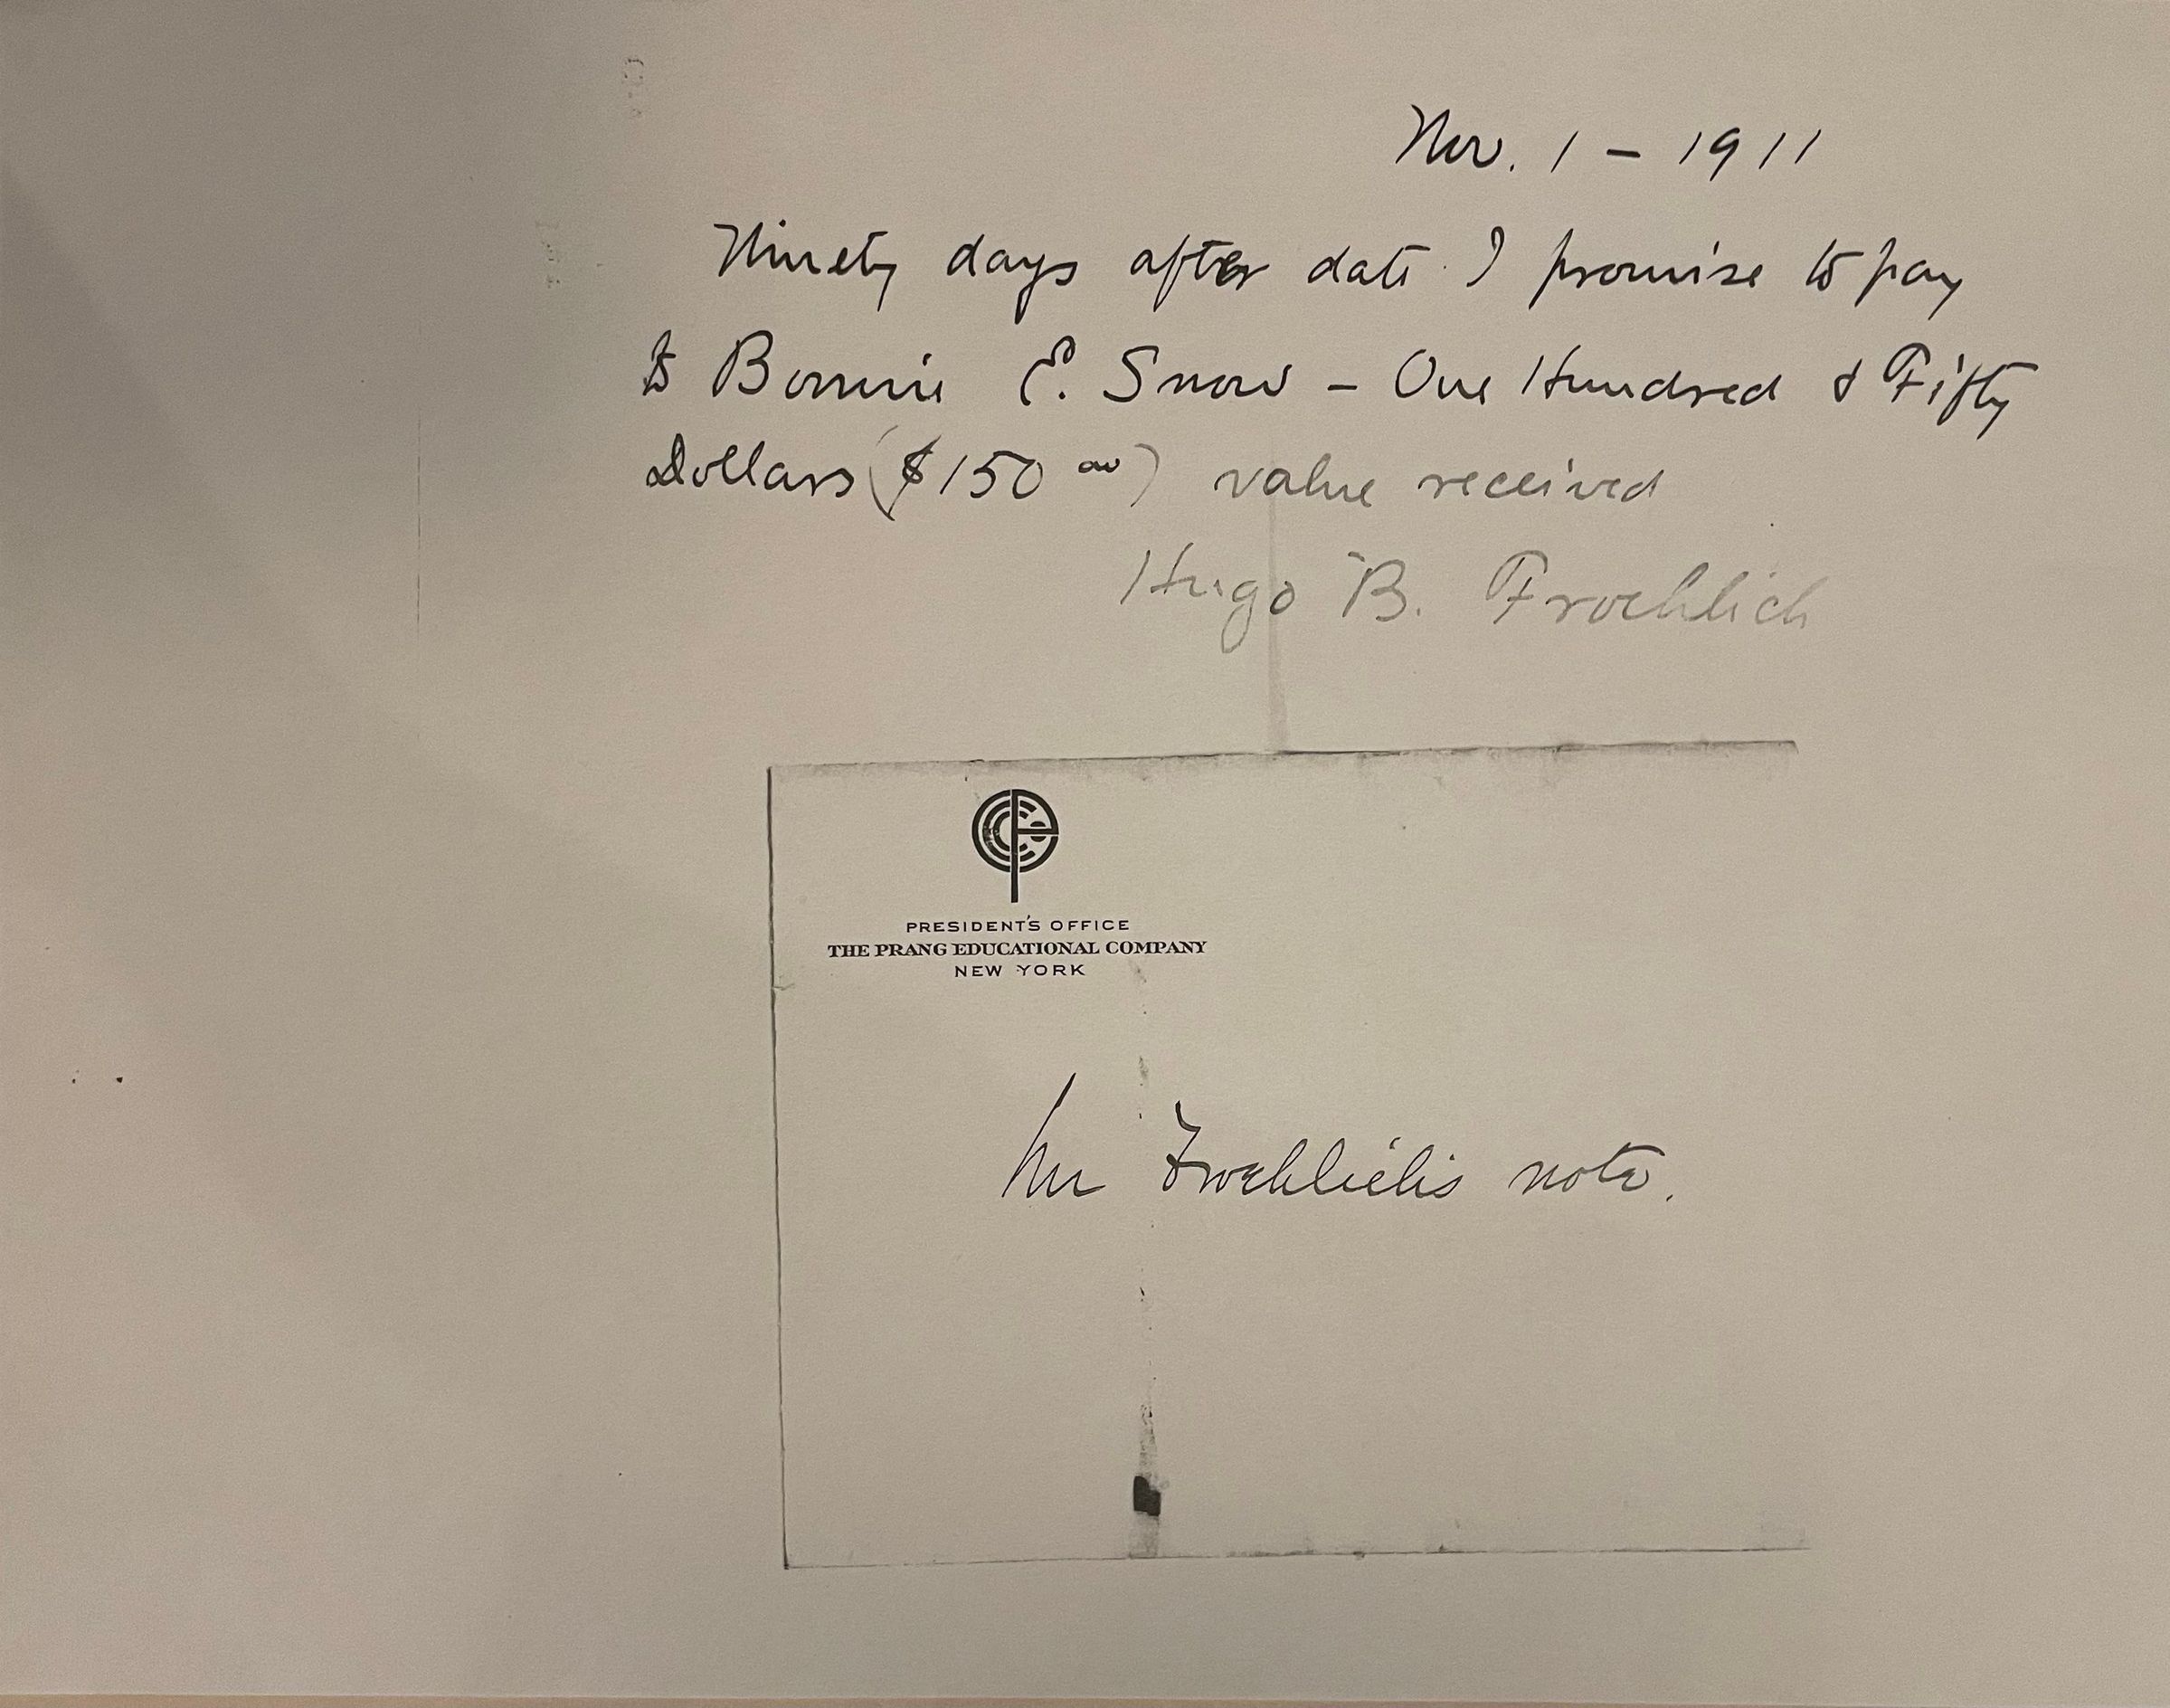 Nov. 1 – 1911
Ninety days after date I promise to pay
to Bonnie E. Snow – One Hundred & Fifty
Dollars ($150 00) value received
Hugo B. Froehlich
PRESIDENT'S OFFICE
THE PRANG EDUCATIONAL COMPANY
NEW YORK
Mr Froehlich's note.